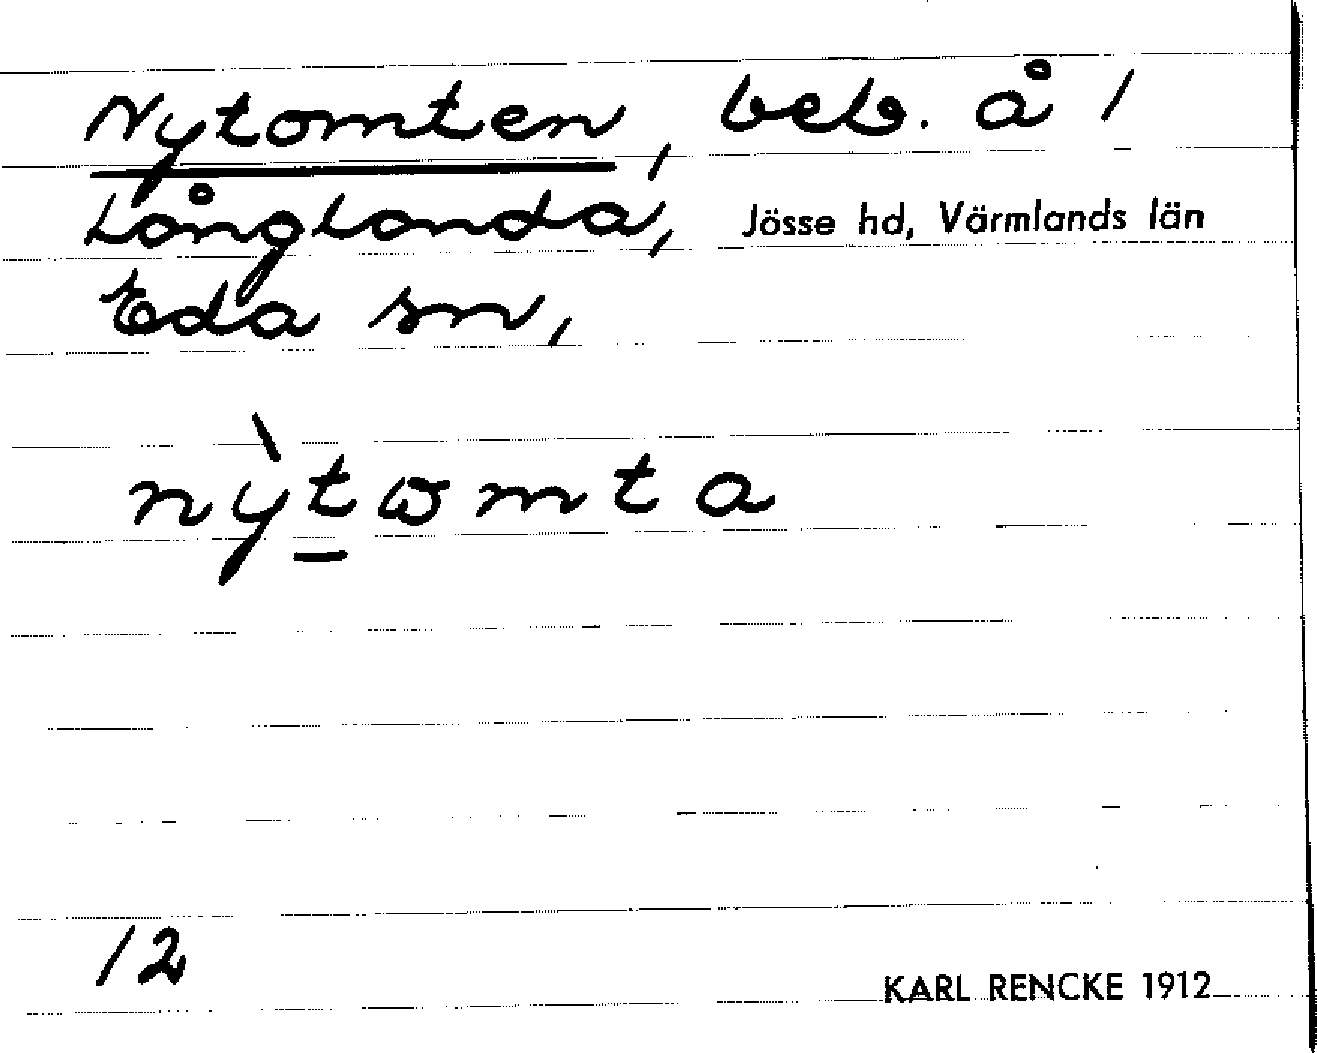 Nytomten, beb. å 1
Långlanda, Jösse hd, Värmlands län
Eda sn,
nỳtωmta
12
KARL RENCKE 1912